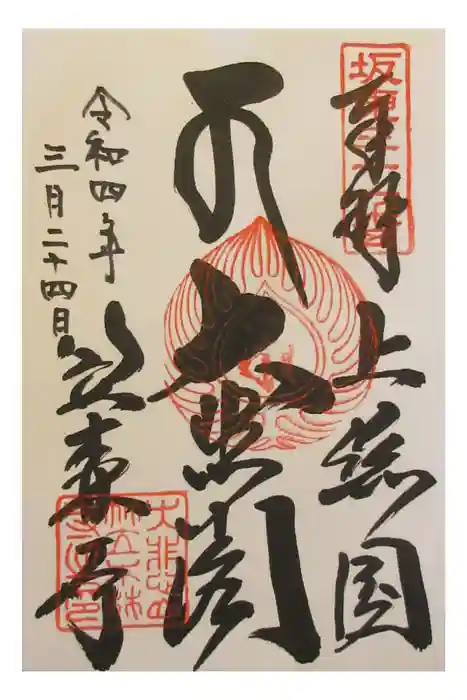 坂東三十一番
奉拝
上総国
大悲閣
笠森寺
令和四年
三月二十四日